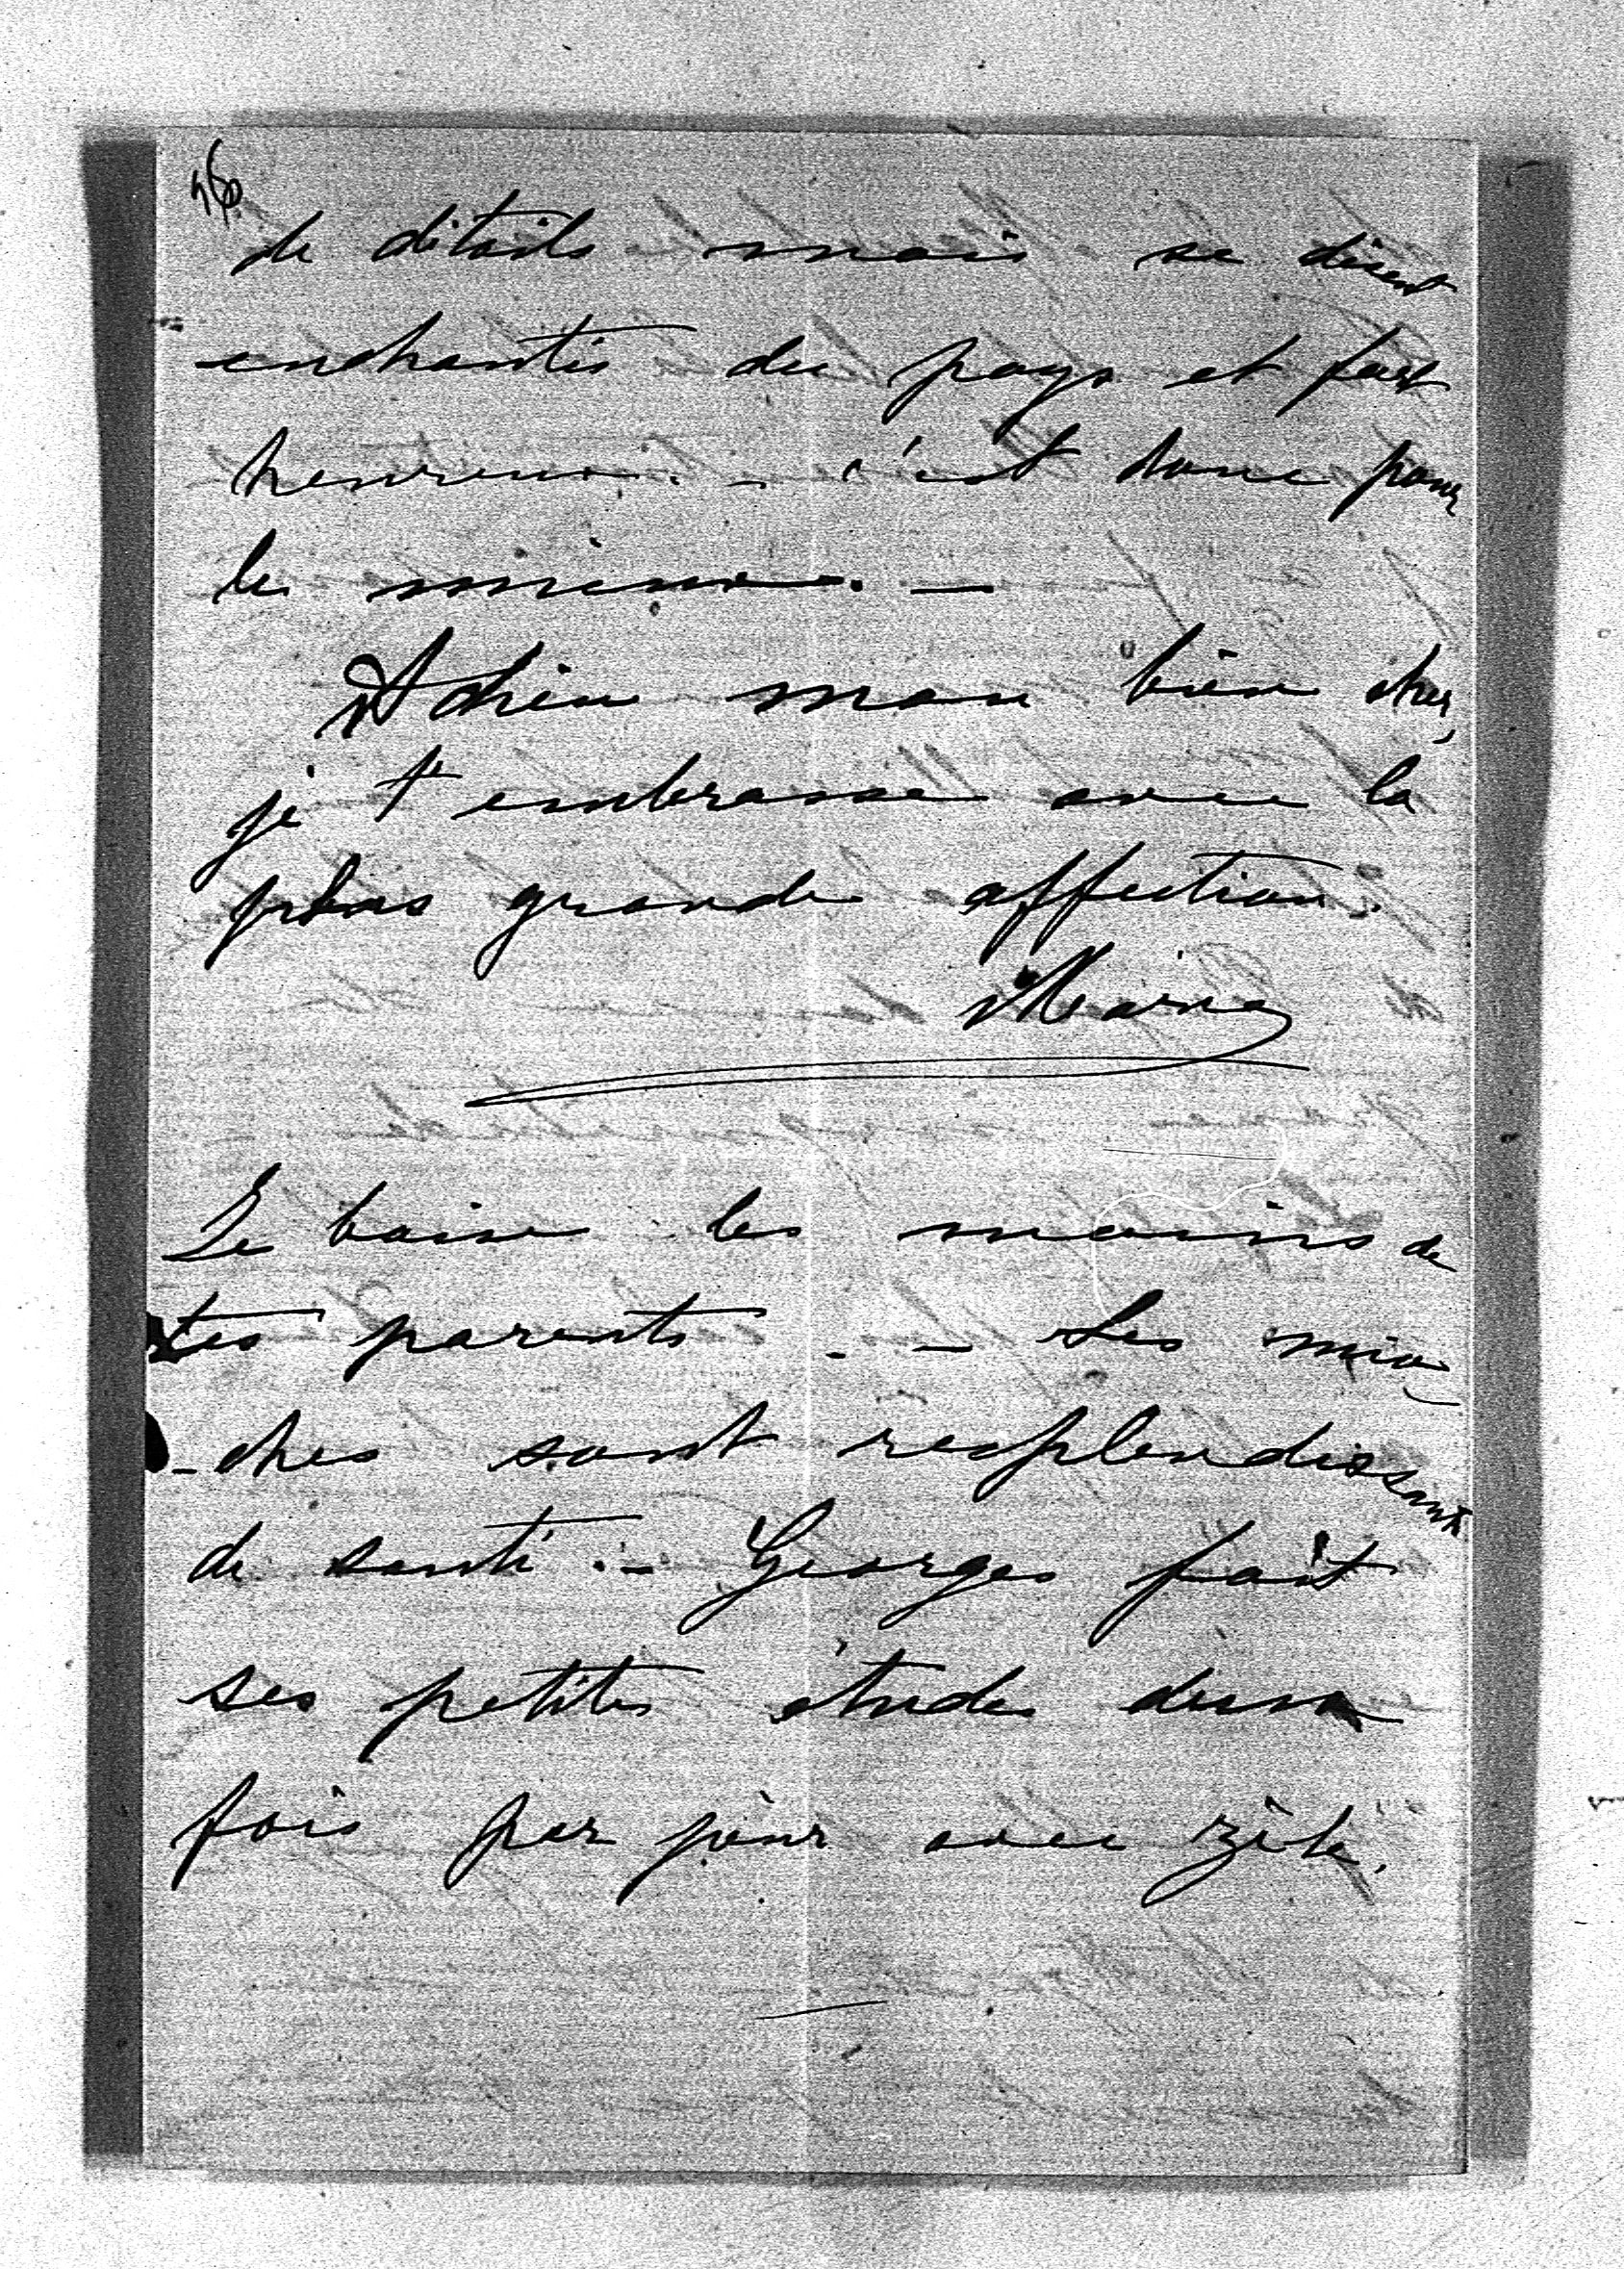 de détails mais se disent
enchantés du pays et fort
heureux. – c'est donc pour
le mieux. –
Adieu mon bien cher,
je t'embrasse avec la
plus grande affection.
Je baise les mains de
tes parents. – Les mio-
-ches sont resplendissants
de santé. – Georges fait
ses petites études deux
fois par jour avec zèle.